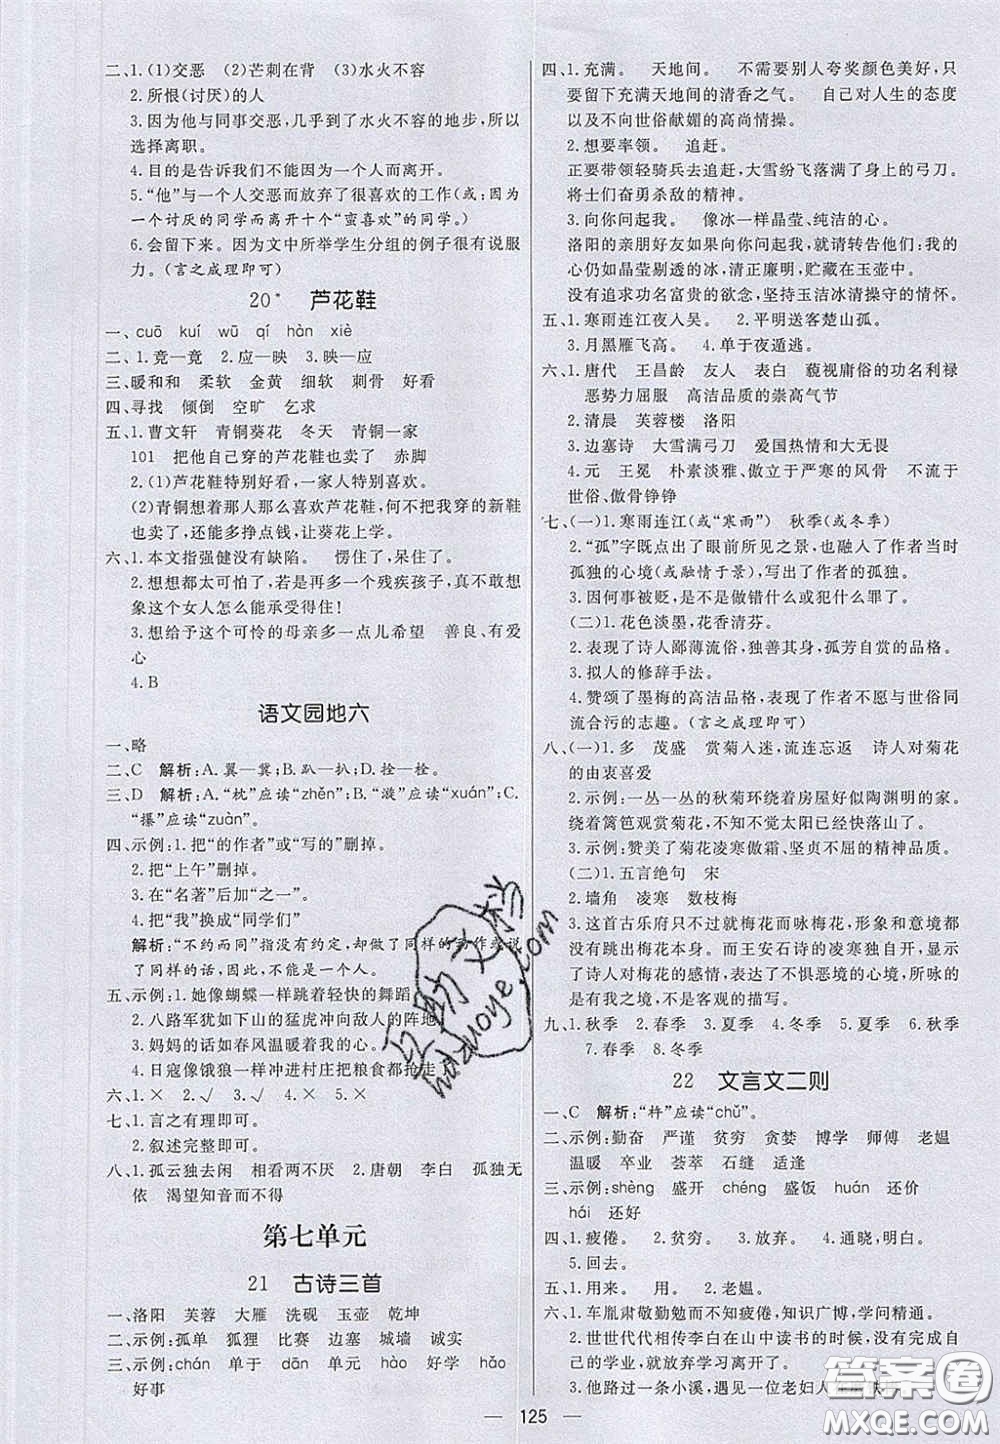 二、1.(1)交恶　(2)芒刺在背　(3)水火不容
2.所恨(讨厌)的人
3.因为他与同事交恶,几乎到了水火不容的地步,所以
选择离职。
4.目的是告诉我们不能因为一个人而离开。
5.“他”与一个人交恶而放弃了很喜欢的工作(或:因为
一个讨厌的同学而离开十个“蛮喜欢”的同学)。
6.会留下来。因为文中所举学生分组的例子很有说服
力。(言之成理即可)
20* 芦花鞋
一、cuō kuí wū qí hàn xiè
二、1.竟—竞 2.应—映 3.映—应
三、暖和和 柔软 金黄 细软 刺骨 好看
四、寻找 倾倒 空旷 乞求
五、1.曹文轩 青铜葵花 冬天 青铜一家
101 把他自己穿的芦花鞋也卖了 赤脚
2.(1)芦花鞋特别好看,一家人特别喜欢。
(2)青铜想着那人那么喜欢芦花鞋,何不把我穿的新鞋
也卖了,还能多挣点钱,让葵花上学。
六、1.本文指强健没有缺陷。 愣住了,呆住了。
2.想想都太可怕了,若是再多一个残疾孩子,真不敢想
象这个女人怎么能承受得住!
3.想给予这个可怜的母亲多一点儿希望 善良、有爱
心
4.B
语文园地六
一、略
二、C 解析:A.翼—冀;B.趴—扒;D.拴—栓。
三、D 解析:A.“枕”应读“zhěn”;B“漩”应读“xuán”;C.
“攥”应读“zuàn”。
四、示例:1.把“的作者”或“写的”删掉。
2.把“上午”删掉。
3.在“名著”后加“之一”。
4.把“我”换成“同学们”
解析:“不约而同”指没有约定,却做了同样的动作或说
了同样的话,因此,不能是一个人。
五、示例:1.她像蝴蝶一样跳着轻快的舞蹈
2.八路军犹如下山的猛虎冲向敌人的阵地
3.妈妈的话如春风温暖着我的心。
4.日寇像饿狼一样冲进村庄把粮食都抢走了
六、1.× 2.√ 3.√ 4.× 5.×
七、1.言之有理即可。
2.叙述完整即可。
八、1.孤云独去闲 相看两不厌 2.唐朝 李白 孤独无
依 渴望知音而不得
第七单元
21 古诗三首
一、洛阳 芙蓉 大雁 洗砚 玉壶 乾坤
二、示例:孤单 狐狸 比赛 边塞 城墙 诚实
三、示例:chán 单于 dān 单元 hào 好学 hǎo
好事
四、1.充满。 天地间。 不需要别人夸奖颜色美好,
只要留下充满天地间的清香之气。 自己对人生的态度
以及不向世俗献媚的高尚情操。
2.想要率领。 追赶。
正要带领轻骑兵去追赶,大雪纷飞落满了身上的弓刀。
将士们奋勇杀敌的精神。
3.向你问起我。 像冰一样晶莹、纯洁的心。
洛阳的亲朋好友如果向你问起我,就请转告他们:我的
心仍如晶莹剔透的冰,清正廉明,贮藏在玉壶中。
没有追求功名富贵的欲念,坚持玉洁冰清操守的情怀。
五、1.寒雨连江夜入吴。 2.平明送客楚山孤。
3.月黑雁飞高。 4.单于夜遁逃。
六、1.唐代 王昌龄 友人 表白 藐视庸俗的功名利禄
恶势力屈服 高洁品质的崇高气节
2.清晨 芙蓉楼 洛阳
3.边塞诗 大雪满弓刀 爱国热情和大无畏
4.元 王冕 朴素淡雅、傲立于严寒的风骨 不流于
世俗、傲骨铮铮
七、(一)1.寒雨连江(或“寒雨”) 秋季(或冬季)
2.“孤”字既点出了眼前所见之景,也融入了作者当时
孤独的心境(或融情于景),写出了作者的孤独。
3.因何事被贬,是不是做错什么或犯什么罪了。
(二)1.花色淡墨,花香清芬。
2.表现了诗人鄙薄流俗、独善其身、孤芳自赏的品格。
3.拟人的修辞手法。
4.赞颂了墨梅的高洁品格,表现了作者不愿与世俗同
流合污的志趣。(言之成理即可)
八、(一)1.多 茂盛 赏菊入迷,流连忘返 诗人对菊花
的由衷喜爱
2.示例:一丛一丛的秋菊环绕着房屋好似陶渊明的家。
绕着篱笆观赏菊花,不知不觉太阳已经快落山了。
3.示例:赞美了菊花凌寒傲霜、坚贞不屈的精神品质。
(二)1.五言绝句 宋
2.墙角 凌寒 数枝梅
3.这首古乐府只不过就梅花而咏梅花,形象和意境都
没有跳出梅花本身。而王安石诗的凌寒独自开,显示
了诗人对梅花的感情,表达了不惧恶境的心境,所咏的
是有我之境,而不是没有灵魂的描写。
九、1.秋季 2.春季 3.夏季 4.冬季 5.秋季 6.秋季
7.春季 8.冬季
22 文言文二则
一、C 解析:“杵”应读“chǔ”。
二、示例:勤奋 严谨 贫穷 贪婪 博学 师傅 老媪
温暖 卒业 荟萃 石缝 适逢
三、示例:shèng 盛开 chéng 盛饭 huán 还价
hái 还好
四、1.疲倦。 2.贫穷。 3.放弃。 4.通晓,明白。
5.回去。
五、1.用来。 用。 2.老媪。
六、1.车胤肃敬勤勉而不知疲倦,知识广博,学问精通。
2.世世代代相传李白在山中读书的时候,没有完成自
己的学业,就放弃学习离开了。
3.他路过一条小溪,遇见一位老妇人
125
答案圈
MXQE.COM
互助文档
huzhuoye.com